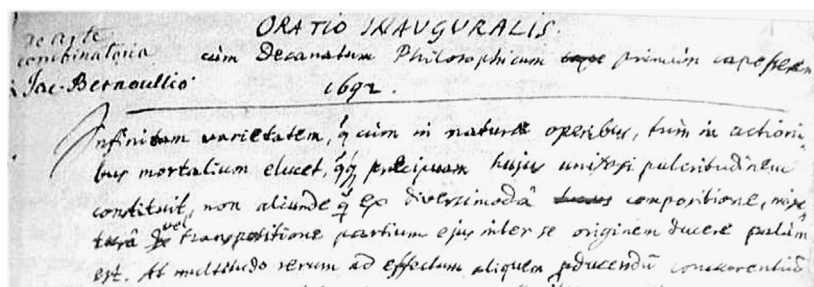 ORATIO INAUGURALIS.
De Arte
combinatoria
Jac. Bernoullio.
cùm Decanatum Philosophicum primùm capesserem
1692.
Infinitam varietatem, q̃ cùm in naturæ operibus, tum in actioni-
bus mortalium elucet, q̃q̃ præcipuam hujus universi pulcritudinem
constituit, non aliunde q̃ ex diversimodâ compositione, mix-
turâ vel transpositione partium ejus inter se originem ducere palàm
est. At multitudo rerum ad effectum aliquem producendũ concurrentiũ